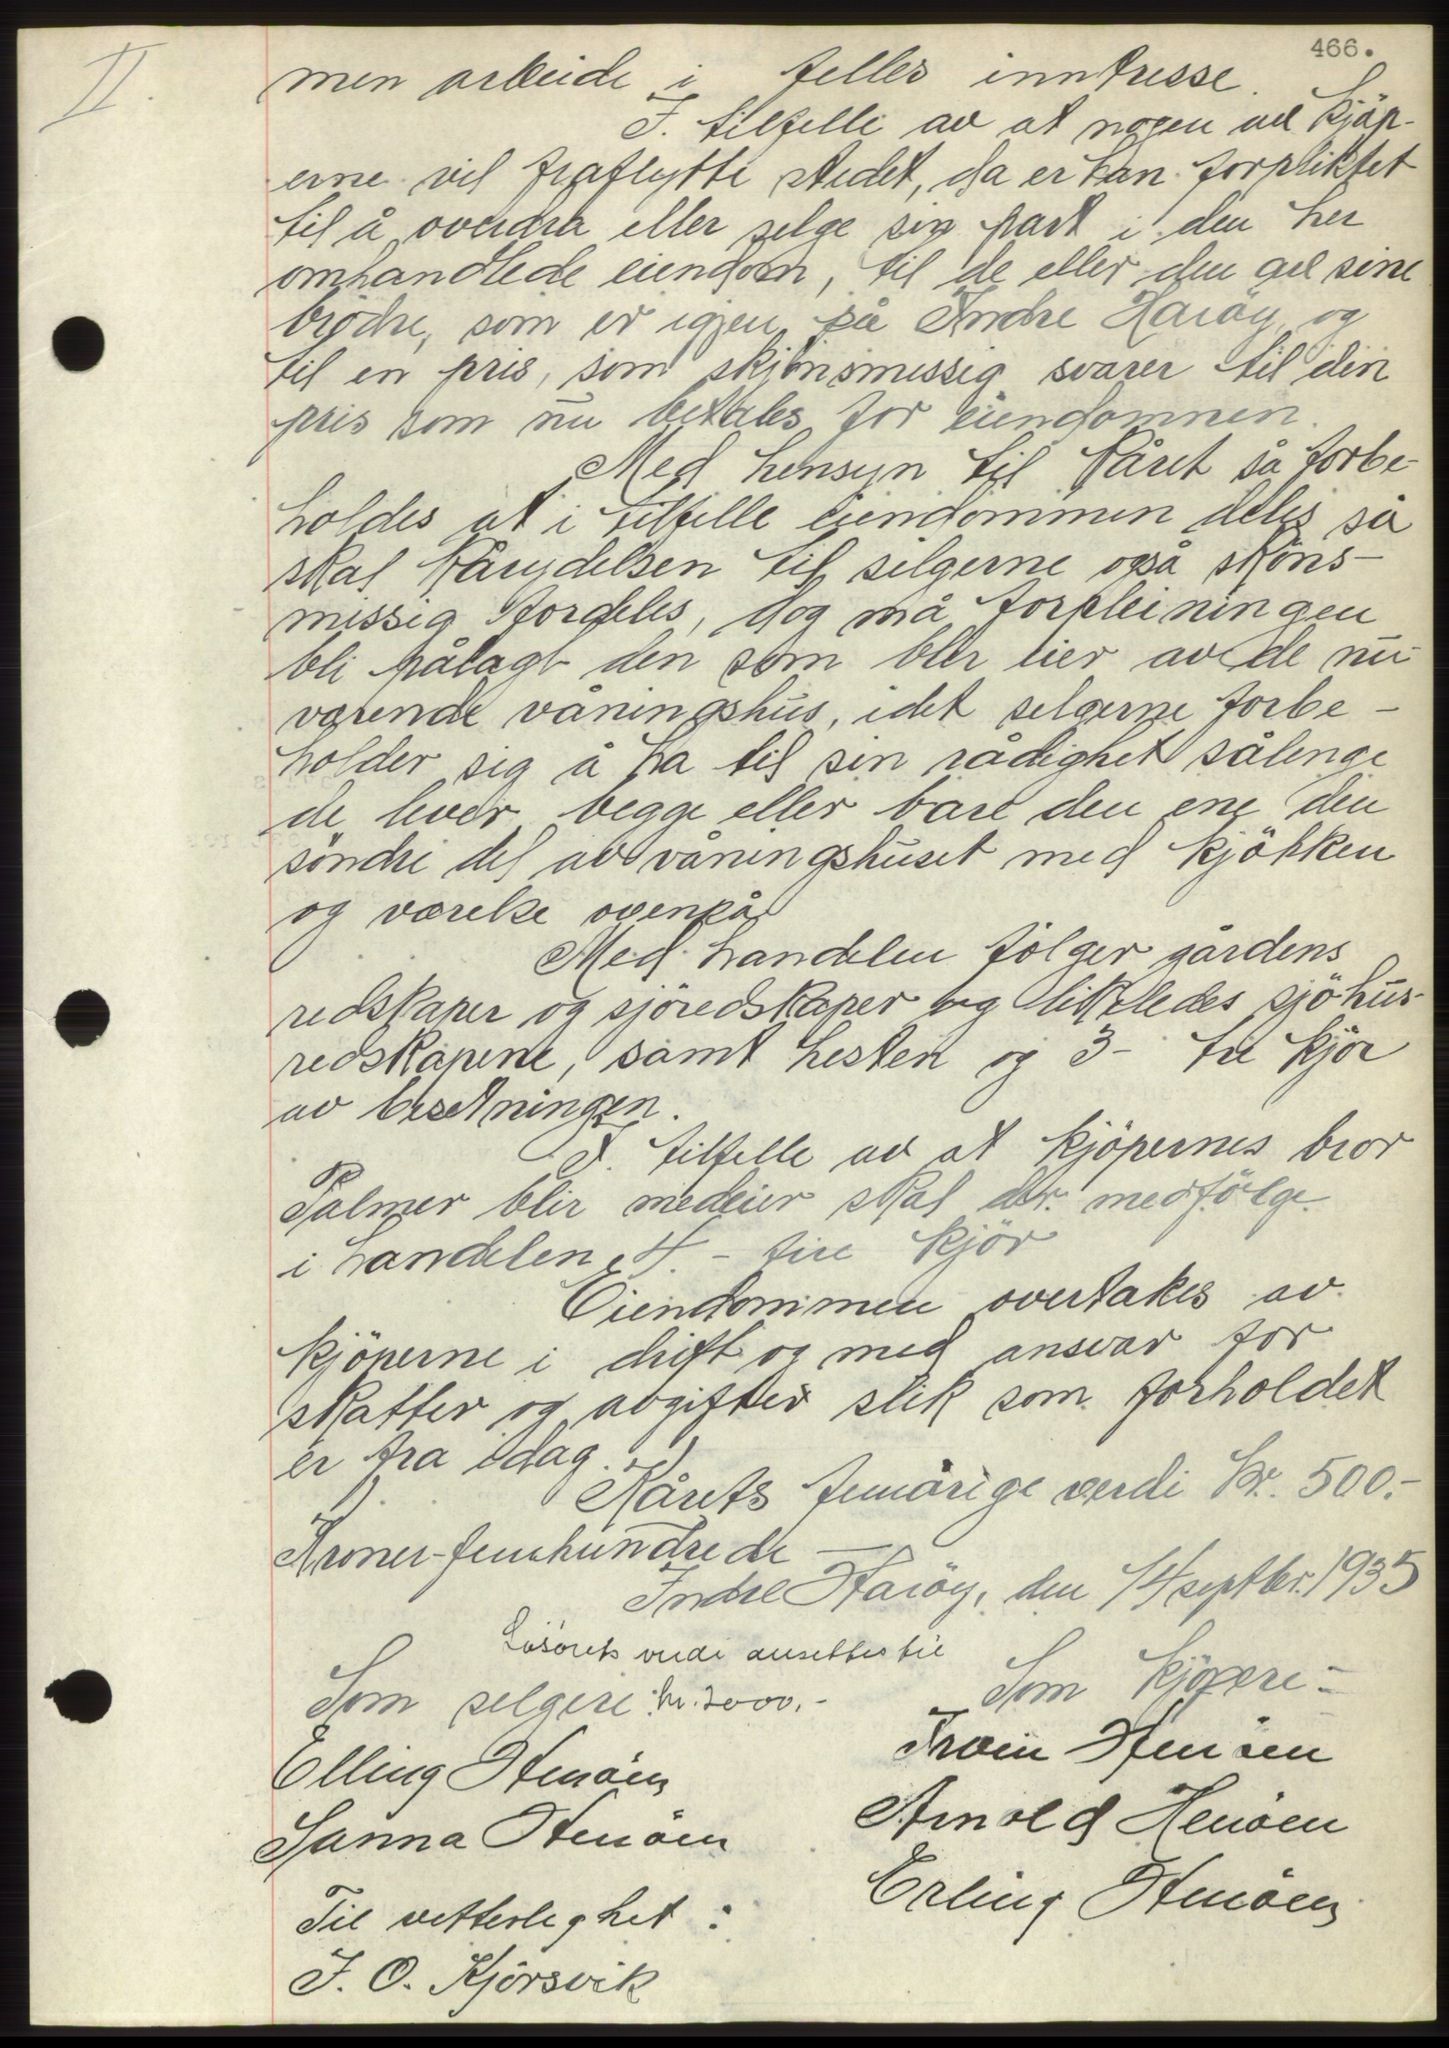 466.
II.
men arbeide i felles inntresse.
I. tilfelle av at nogen av kjöp-
erne vil fraflytte stedet, da er han forpliktet
til å overdra eller selge sin part i den her
omhandlede eiendom, til de eller den av sine
brödre, som er igjen på Indre Haröy, og
til en pris, som skjönsmessig svarer til den
pris som nu betales for eiendommen.
Med hensyn til kåret så forbe-
holdes at i tilfelle eiendommen deles så
skal kårydelsen til selgerne også sköns-
messig fordeles, dog må forpleiningen
bli pålagt den som blir eier av de nu-
værende våningshus, idet selgerne forbe-
holder sig å ha til sin rådighet sålenge
de lever begge eller bare den ene den
söndre del av våningshuset med kjökken
og værelse ovenpå
Med handelen fölger gårdens
redskaper og sjöredskaper og likeledes sjöhus-
redskapene, samt hesten og 3- tre kjör
av besetningen.
I. tilfelle av at kjöpernes bror
Palmer blir medeier skal der medfölge
i handelen 4. - fire kjör
Eiendommen overtakes av
kjöperne i drift og med ansvar for
skatter og avgifter slik som forholdet
er fra idag.
Kårets femårige verdi kr. 500.-
Kroner-femhundrede —
Indre Haröy, den 14 septbr. 1935
Lösörets verdi ansettes til
Som selgere: kr. 2000.-
Som kjöpere:-
Elling Henöen
Sanna Henöen
Henöen
Arnold Henöen
Erling Henöen
Til vitterlighet :
J. O. Kjörsvik